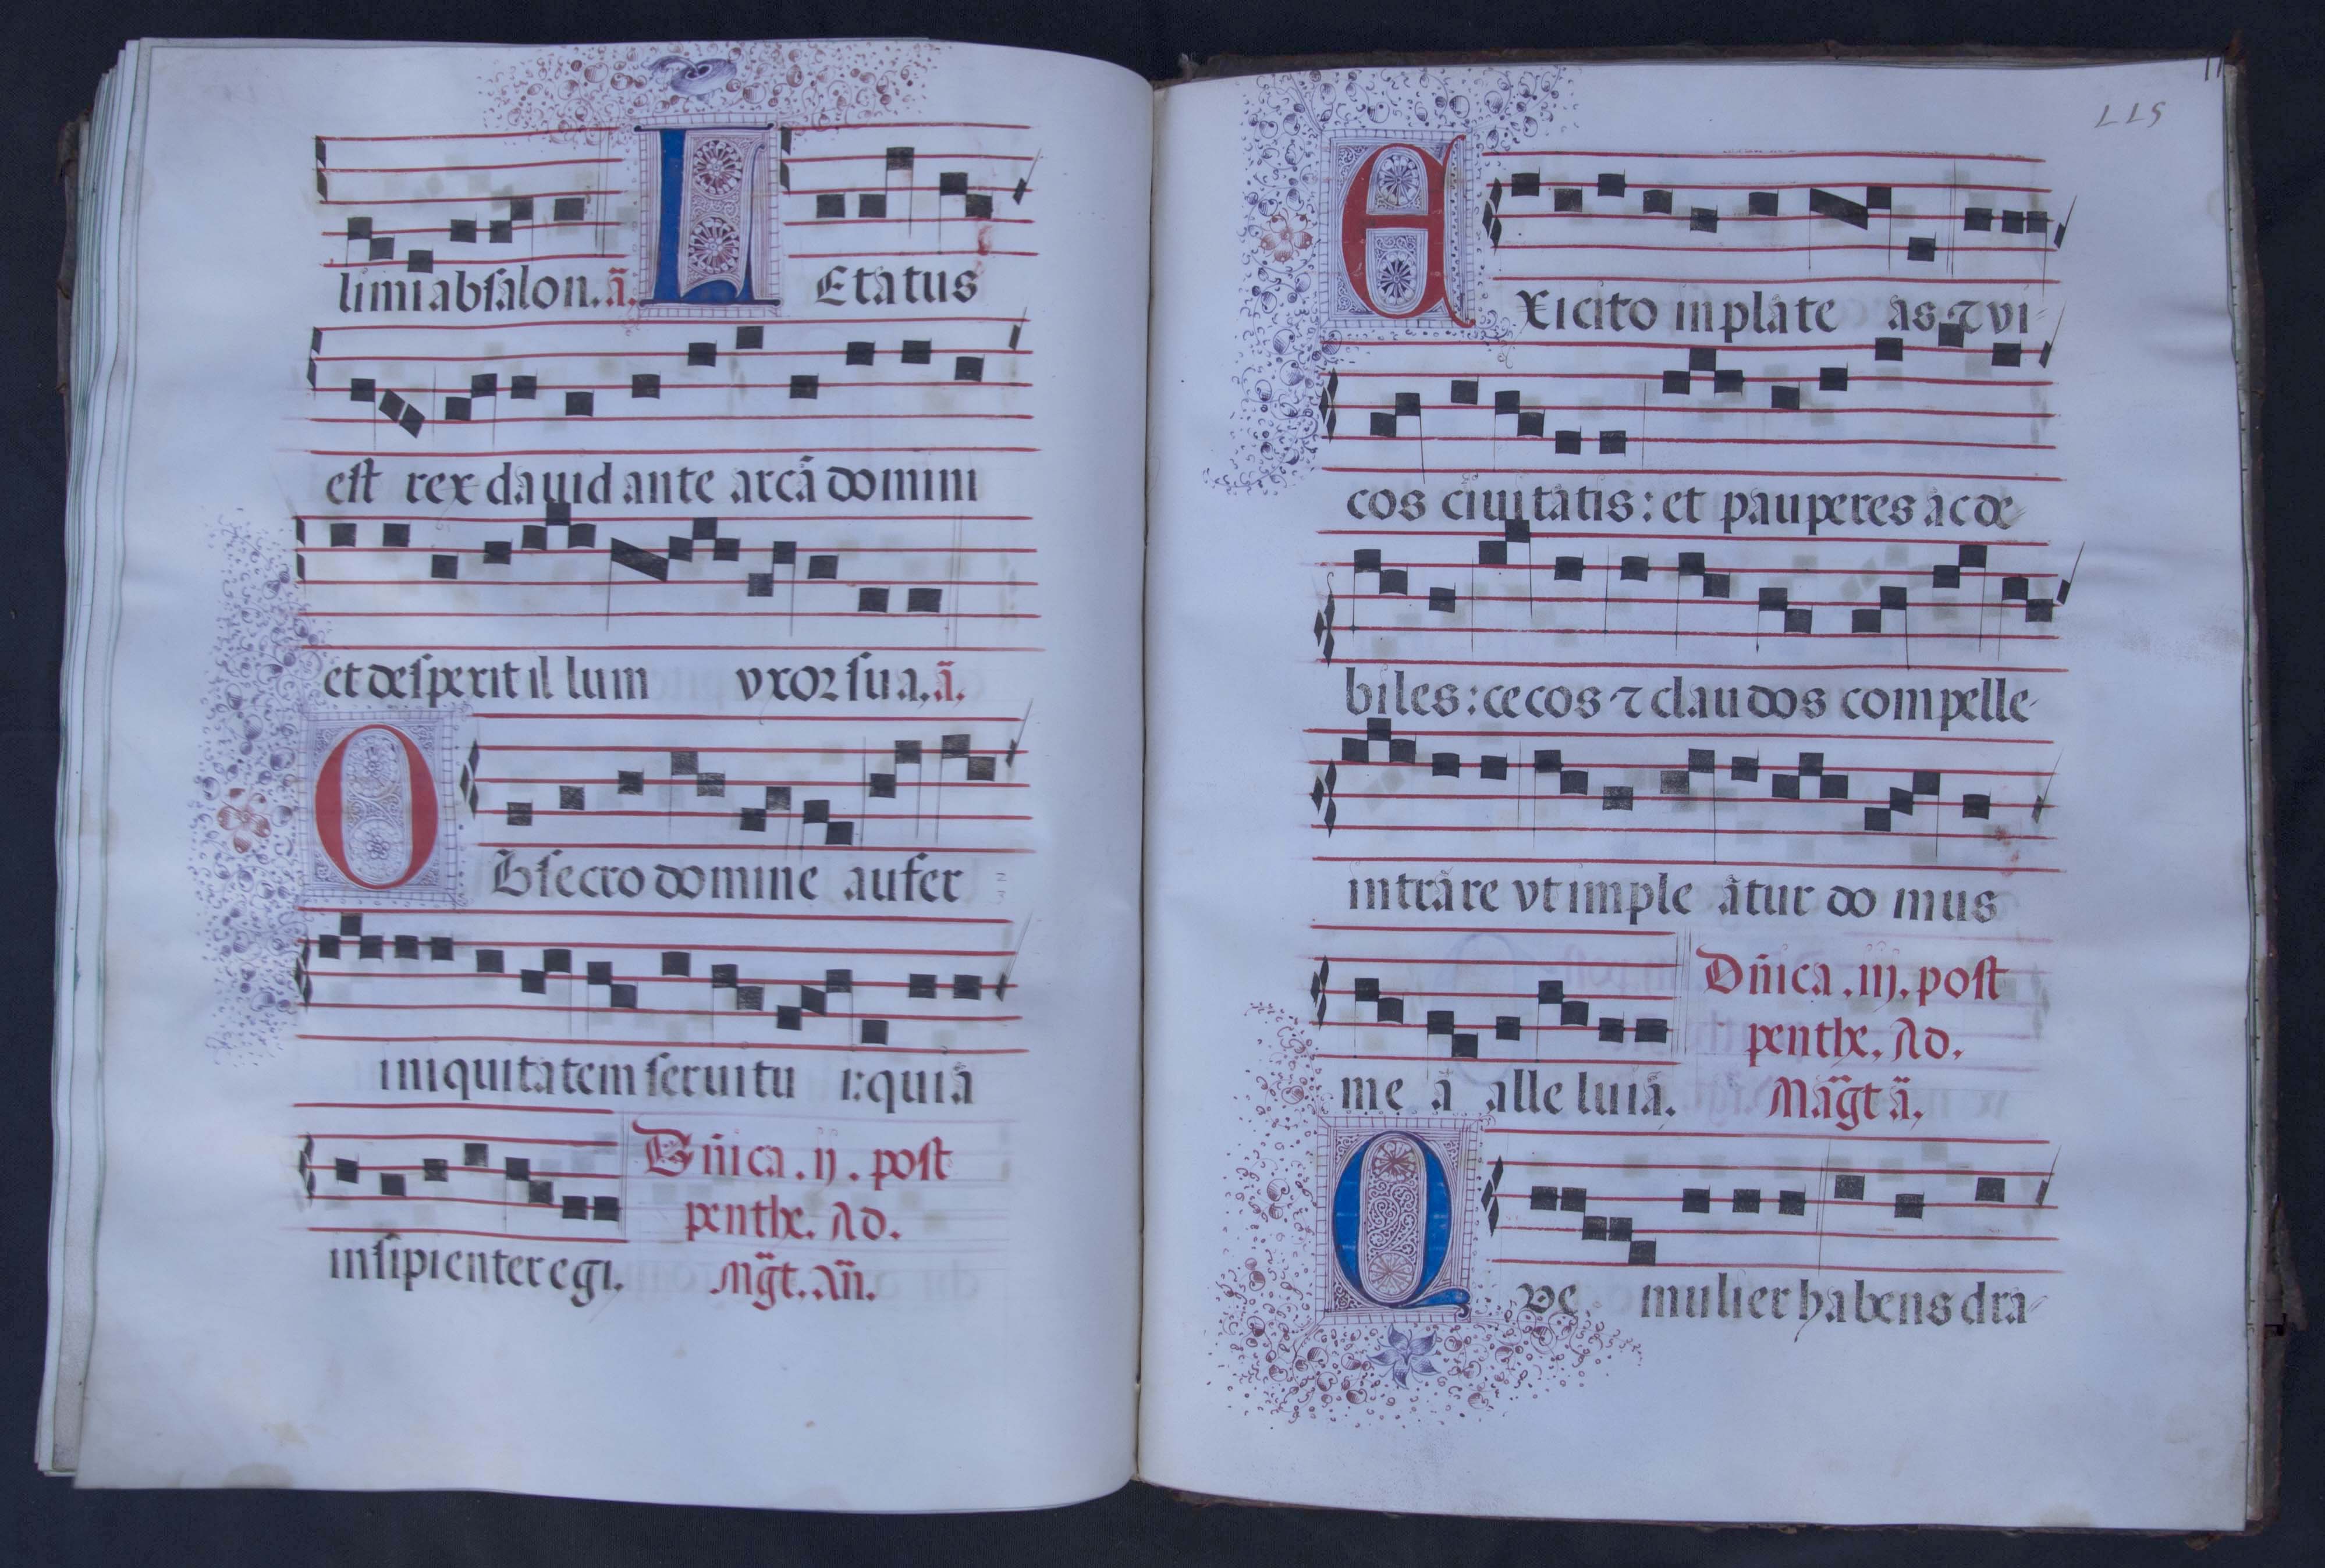 limi absalon. ã. L Etatus
est rex dauid ante arcã domini
et desperit il lum vxor sua, ã.
O Bsecro domine aufer
iniquitatem seruitu i: quia
insipienter egi. Dñica . ij . post
penthe. Ad.
Mg̃t. Añ.
E Xi cito in plate as ⁊ vi
cos ciuitatis: et pauperes ac de
biles: cecos ⁊ claudos compelle
intrare vt imple atur do mus
me a alle luia. Dñica . iij. post
penthe. Ad.
Mãgt ã.
Q ve mulier habens dra